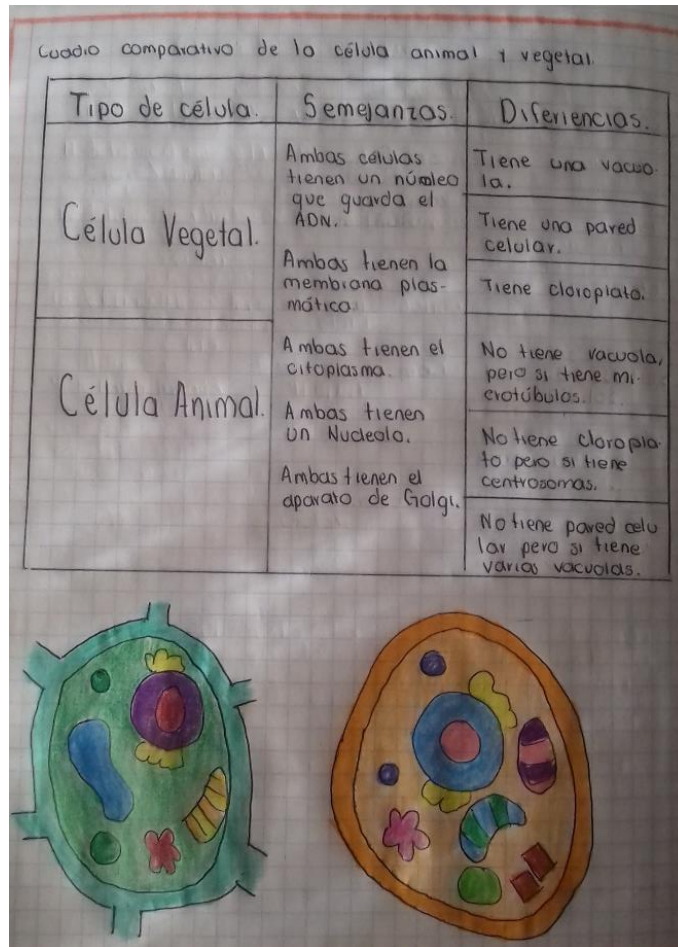 Cuadro comparativo de la célula animal y vegetal.
Tipo de célula.
Semejanzas.
Diferiencias.
Célula Vegetal.
Ambas células
tienen un núcleo
que guarda el
ADN.
Ambas tienen la
membrana plas-
mática
Tiene una vacuo-
la.
Tiene una pared
celular.
Tiene cloroplato.
Célula Animal.
Ambas tienen el
citoplasma.
Ambas tienen
un Nucleolo.
Ambas tienen el
aparato de Golgi.
No tiene vacuola,
pero si tiene mi-
crotúbulos.
No tiene cloropla-
to pero si tiene
centrosomas.
No tiene pared celu
lar pero si tiene
varias vacuolas.